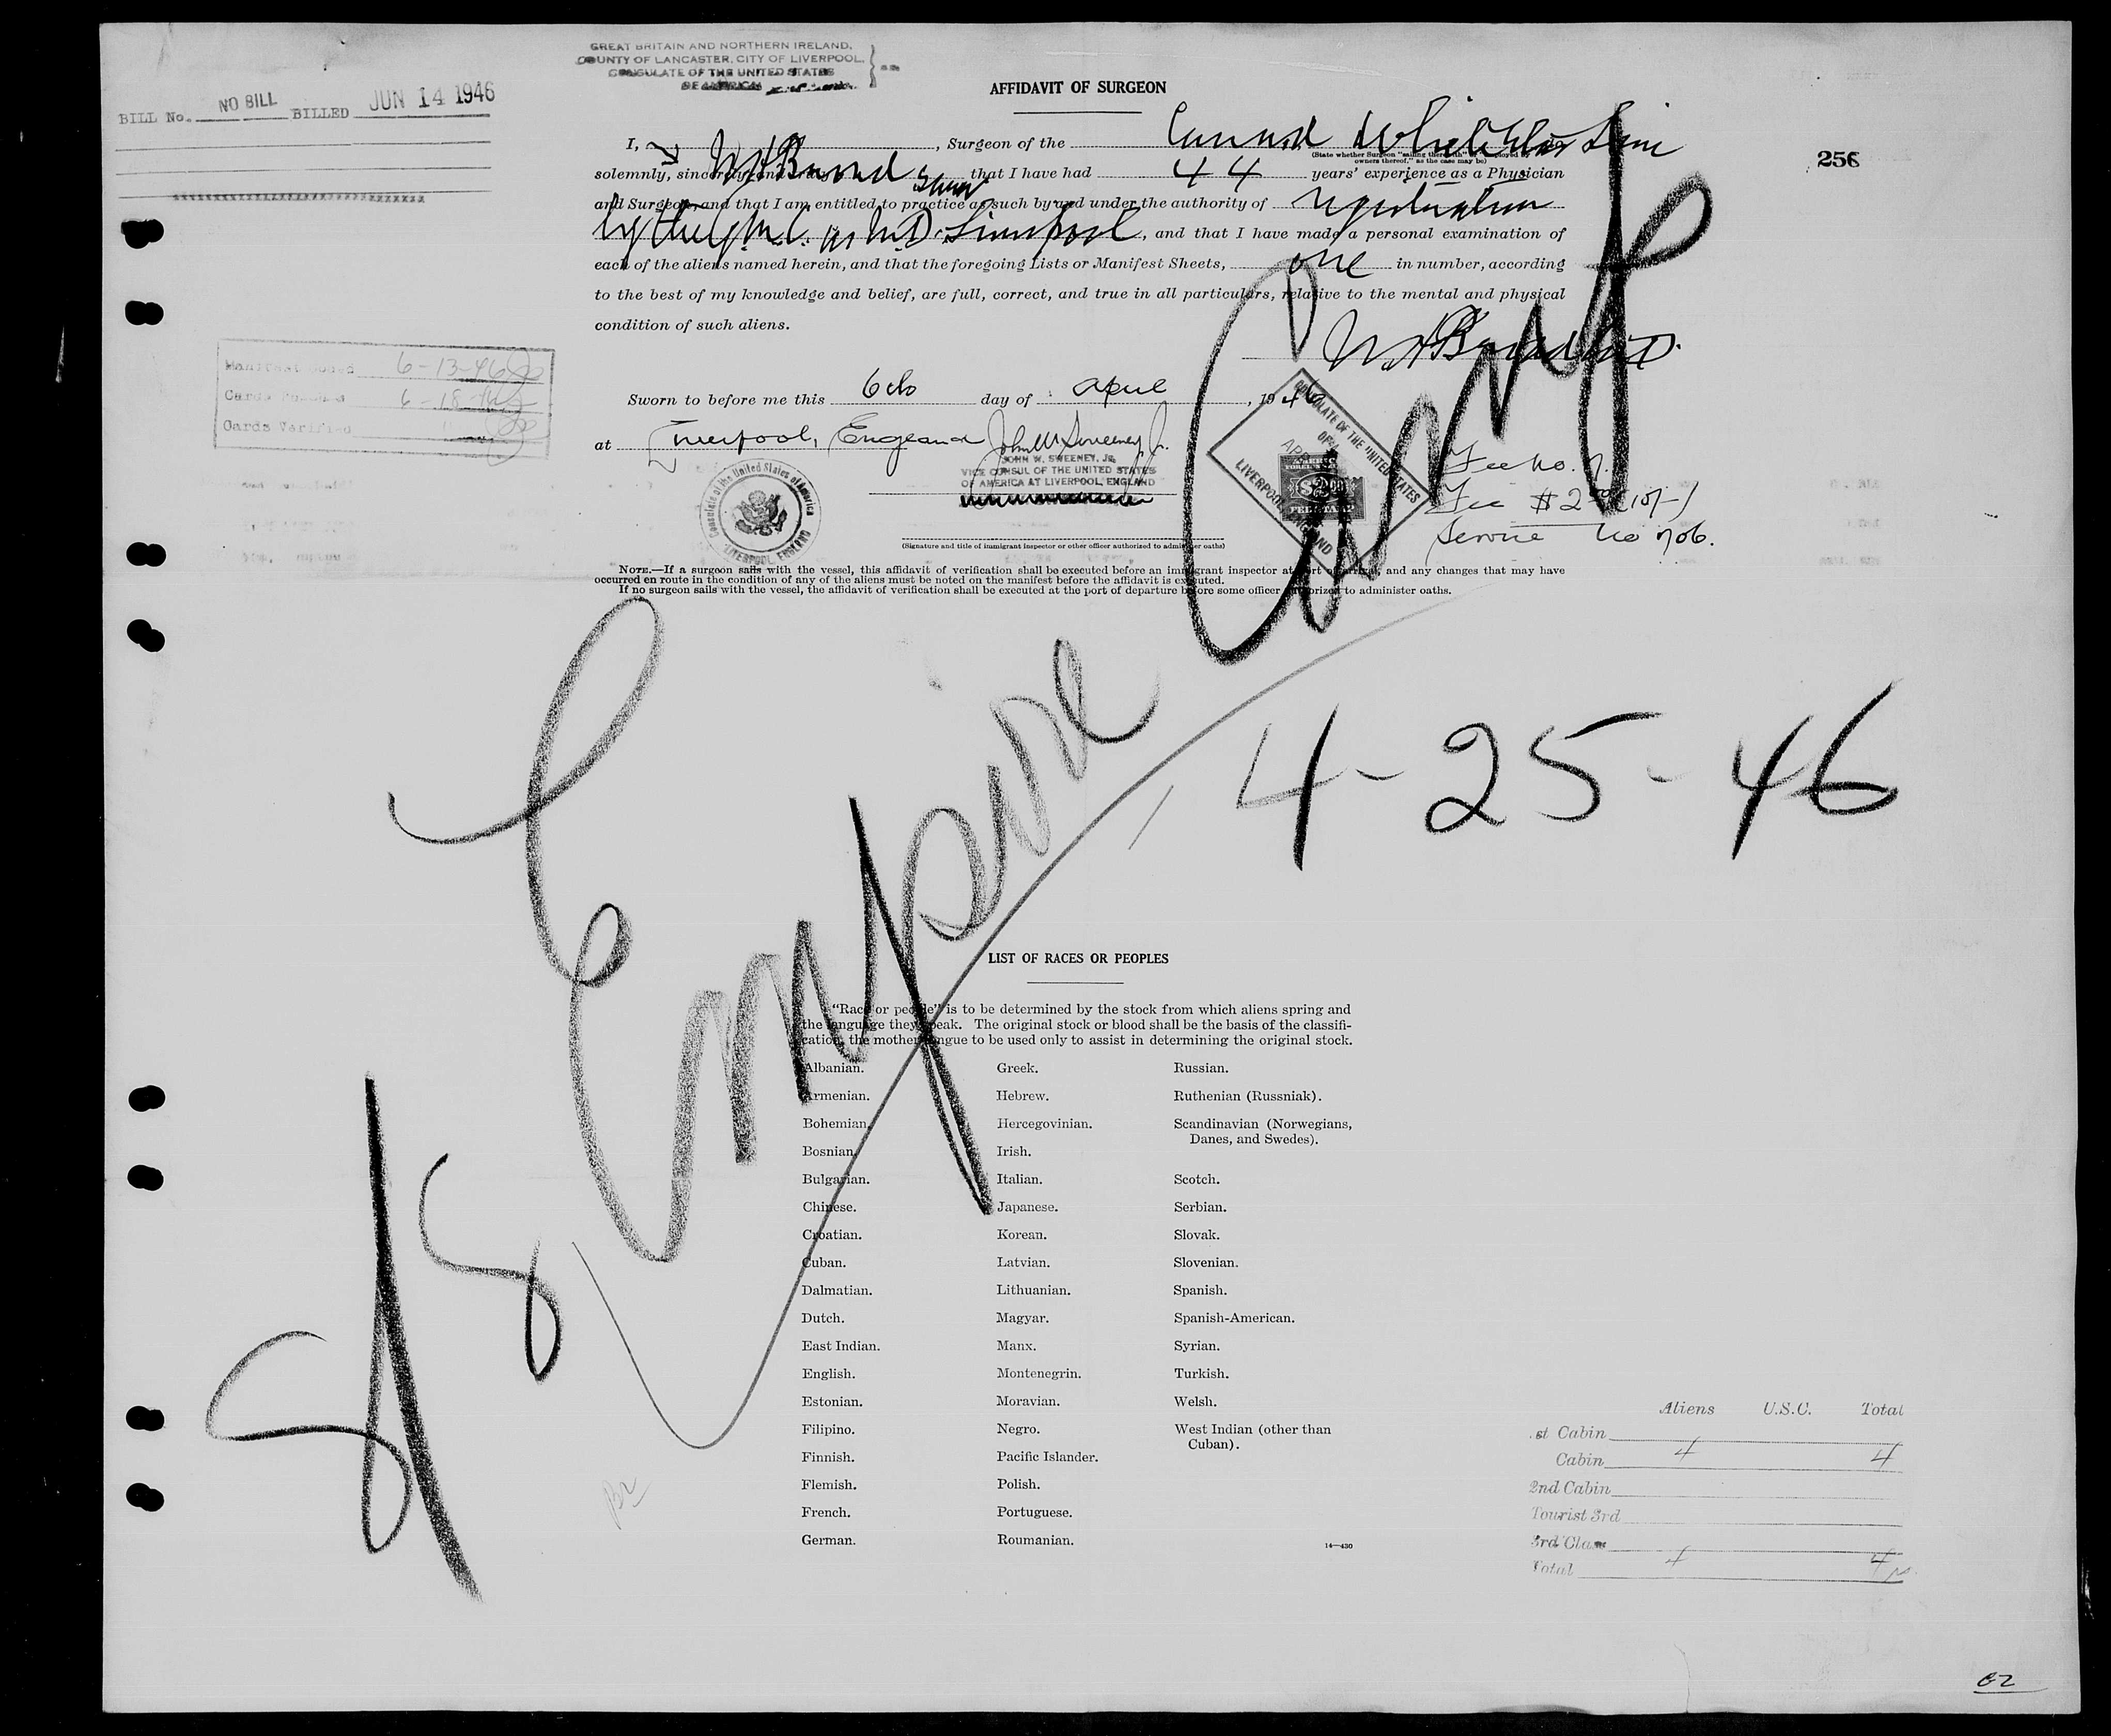 GREAT BRITAIN AND NORTHERN IRELAND,
COUNTY OF LANCASTER, CITY OF LIVERPOOL,
CONSULATE OF THE UNITED STATES
OF AMERICA
BILL No. NO BILL BILLED JUN 14 1946
AFFIDAVIT OF SURGEON
256
I, , Surgeon of the Cunard White Star Line
(State whether Surgeon "sailing therewith" or "employed by
owners thereof," as the case may be)
solemnly, sincerely, and that I have had 44 years' experience as a Physician
and Surgeon, and that I am entitled to practice as such by and under the authority of registration
by the G.M.C. as M.D. Liverpool, and that I have made a personal examination of
each of the aliens named herein, and that the foregoing Lists or Manifest Sheets, one in number, according
to the best of my knowledge and belief, are full, correct, and true in all particulars, relative to the mental and physical
condition of such aliens.
Manifest 6-13-46
Cards 6-18-46
Cards Verified
Sworn to before me this 6th day of April, 1946
at Liverpool, England John W. Sweeney, Jr.
JOHN W. SWEENEY, Jr.
VICE CONSUL OF THE UNITED STATES
OF AMERICA AT LIVERPOOL, ENGLAND
Consulate of the United States of America
LIVERPOOL, ENGLAND
CONSULATE OF THE UNITED STATES
LIVERPOOL, ENGLAND
Fee No. 7.
Fee $2.00 (10/-)
Service No 706.
(Signature and title of immigrant inspector or other officer authorized to administer oaths)
NOTE.—If a surgeon sails with the vessel, this affidavit of verification shall be executed before an immigrant inspector at port of arrival, and any changes that may have
occurred en route in the condition of any of the aliens must be noted on the manifest before the affidavit is executed.
If no surgeon sails with the vessel, the affidavit of verification shall be executed at the port of departure before some officer authorized to administer oaths.
S/S Empire
4-25-46
LIST OF RACES OR PEOPLES
"Race or people" is to be determined by the stock from which aliens spring and
the language they speak. The original stock or blood shall be the basis of the classifi-
cation, the mother tongue to be used only to assist in determining the original stock.
Albanian.
Armenian.
Bohemian.
Bosnian.
Bulgarian.
Chinese.
Croatian.
Cuban.
Dalmatian.
Dutch.
East Indian.
English.
Estonian.
Filipino.
Finnish.
Flemish.
French.
German.
Greek.
Hebrew.
Hercegovinian.
Irish.
Italian.
Japanese.
Korean.
Latvian.
Lithuanian.
Magyar.
Manx.
Montenegrin.
Moravian.
Negro.
Pacific Islander.
Polish.
Portuguese.
Roumanian.
Russian.
Ruthenian (Russniak).
Scandinavian (Norwegians,
Danes, and Swedes).
Scotch.
Serbian.
Slovak.
Slovenian.
Spanish.
Spanish-American.
Syrian.
Turkish.
Welsh.
West Indian (other than
Cuban).
14—430
Aliens U.S.C. Total
st Cabin
Cabin 4 4
2nd Cabin
Tourist 3rd
3rd Class
Total 4 4